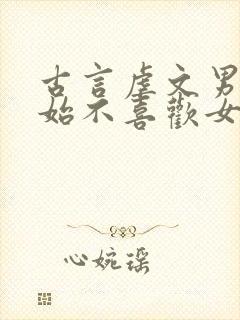 古言虐文男
始不喜歡女
心婉瑶